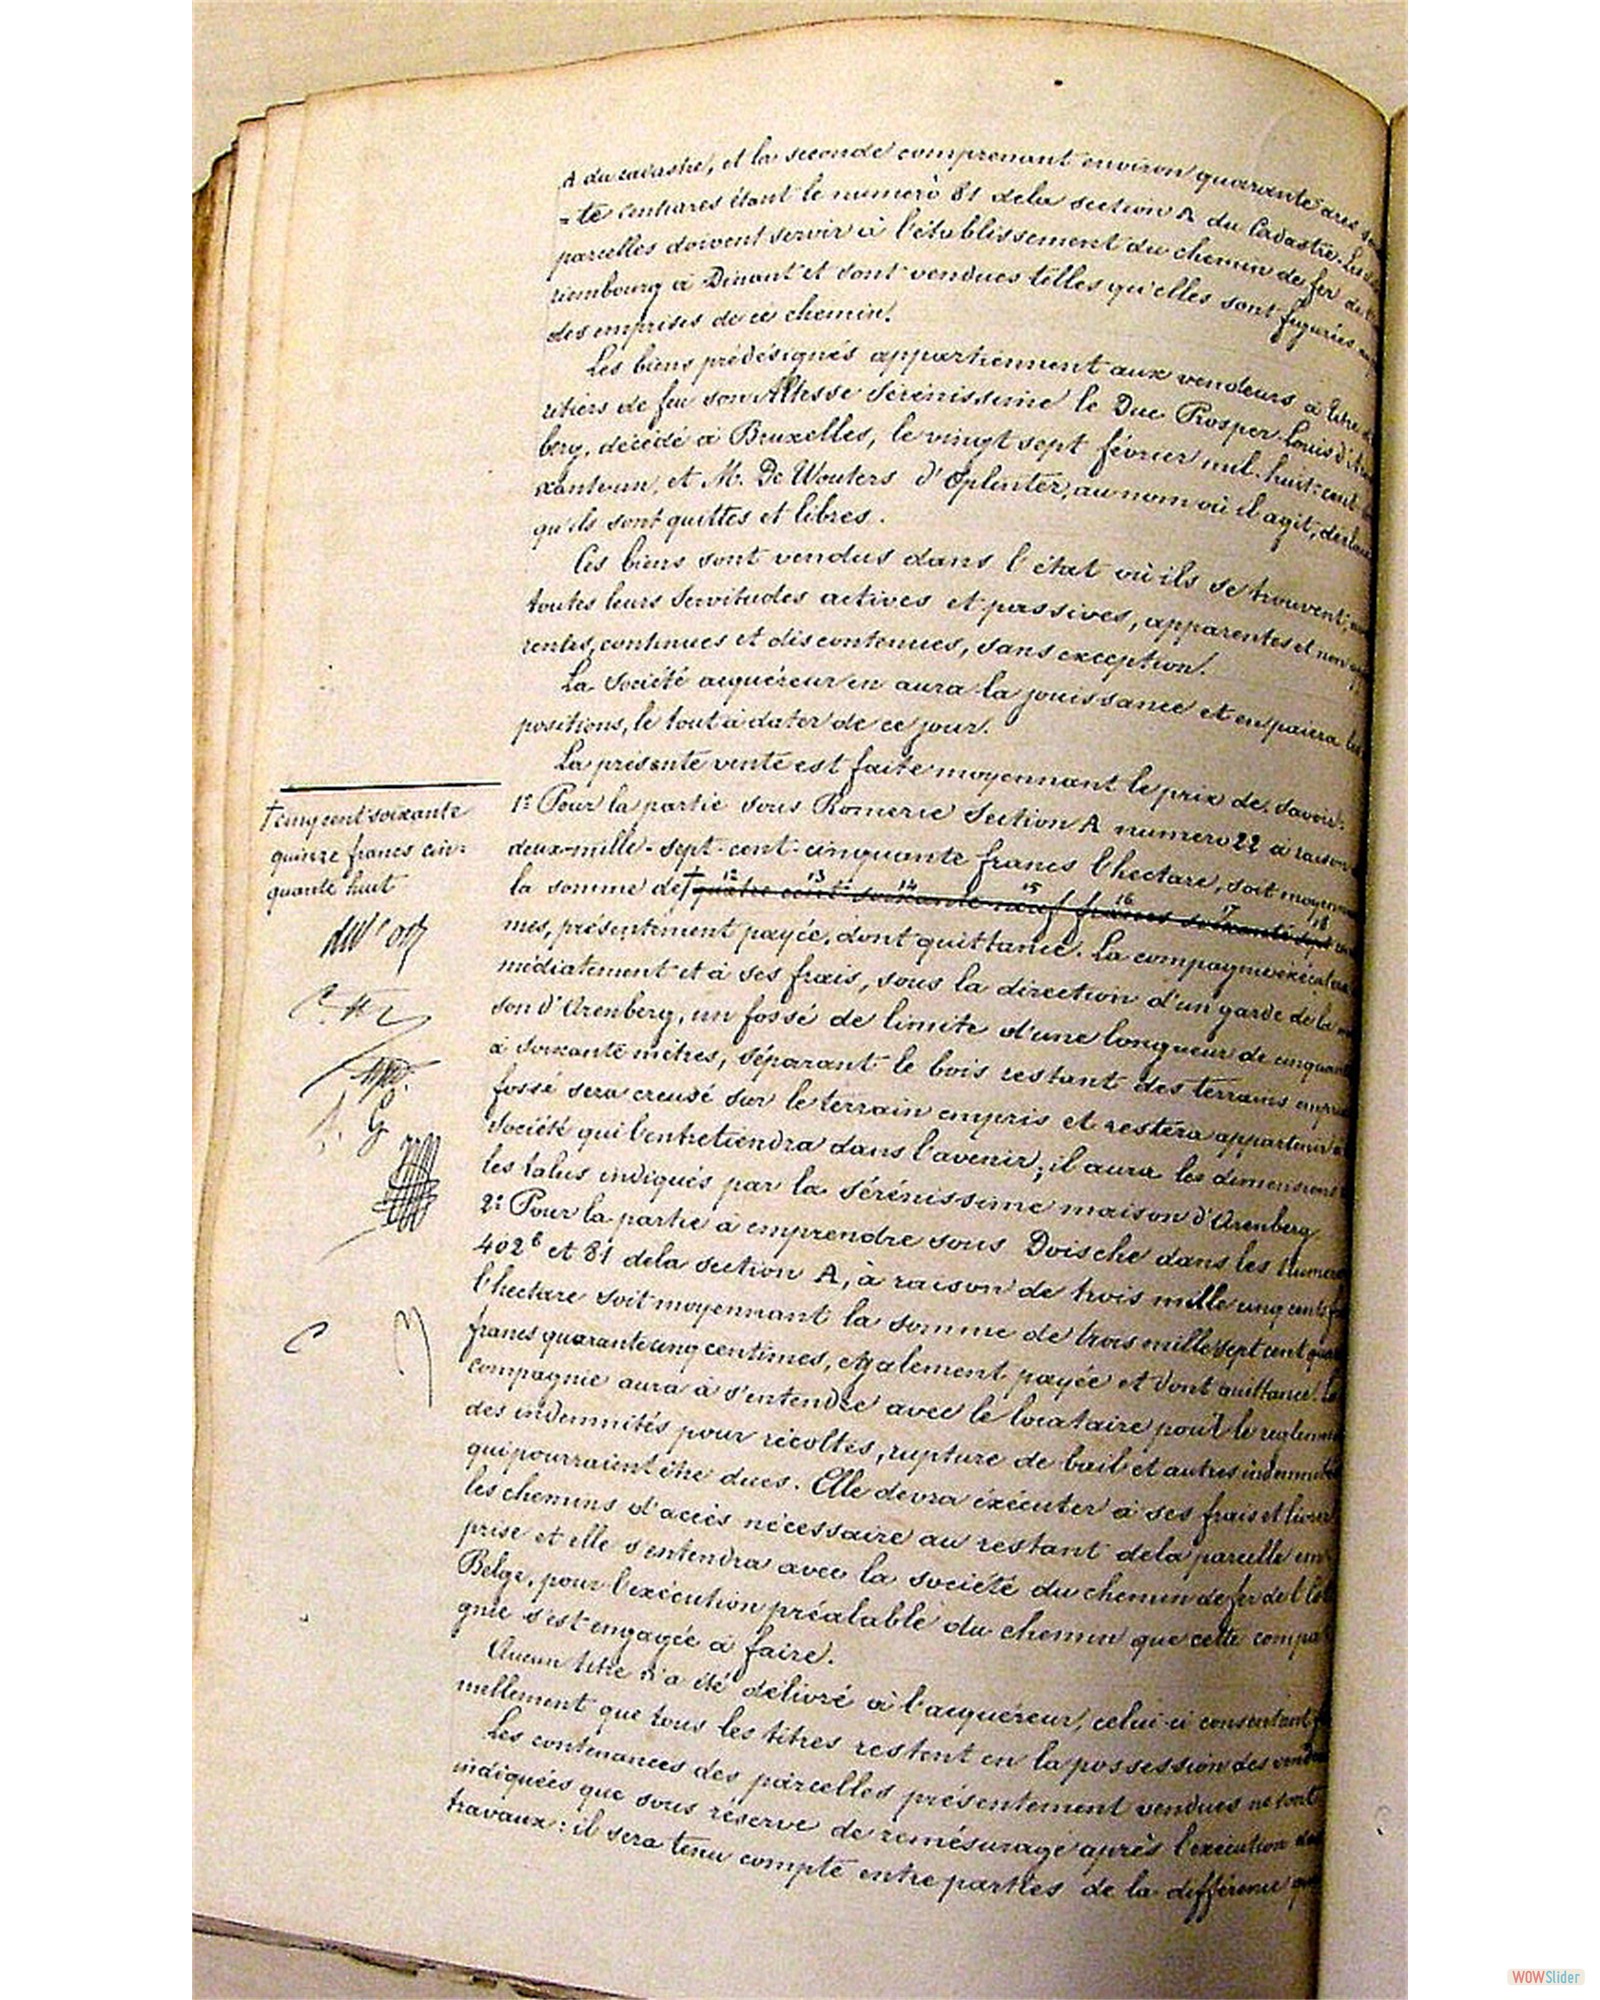 A du cadastre, et la seconde comprenant environ quarante ares
= te centiares étant le numéro 81 de la section A du Cadastre. Les
parcelles doivent servir à l'établissement du chemin de fer de
riembourg à Dinant et sont vendues telles qu'elles sont figurées
des emprises de ce chemin.
Les biens prédésignés appartiennent aux vendeurs à titre
ritiers de feu son Altesse Sérénissime le Duc Prosper Louis d'Aren
berg, décédé à Bruxelles, le vingt sept février mil-huit-cent
xante un, et M. De Wouters d'Oplinter, au nom où il agit, déclare
qu'ils sont quittes et libres.
Ces biens sont vendus dans l'état où ils se trouvent,
toutes leurs servitudes actives et passives, apparentes et non
rentes, continues et discontinues, sans exception.
La Société acquéreur en aura la jouissance et en paiera les
positions, le tout à dater de ce jour.
La présente vente est faite moyennant le prix de. savoir:
1º Pour la partie sous Romerée Section A numéro 22 à raison
deux-mille-sept-cent-cinquante francs l'hectare, soit moyennant
la somme de † quatre cent soixante neuf francs soixante sept
12 13 14 15 16 17 18
mes, présentement payée, dont quittance. La compagnie exécutera
médiatement et à ses frais, sous la direction d'un garde de la
son d'Arenberg, un fossé de limite d'une longueur de cinquante
à soixante mètres, séparant le bois restant des terrains
fossé sera creusé sur le terrain empris et restera appartenir à
société qui l'entretiendra dans l'avenir; il aura les dimensions
les talus indiqués par la Sérénissime maison d'Arenberg
2º Pour la partie à emprendre sous Doische dans les numéros
402 et 81 de la section A, à raison de trois mille cinq cents
l'hectare soit moyennant la somme de trois mille sept cent
francs quarante cinq centimes, également payée et dont quittance. La
compagnie aura à s'entendre avec le locataire pour le règlement
des indemnités pour récoltes, rupture de bail et autres indemnités
qui pourraient être dues. Elle devra exécuter à ses frais et livrer
les chemins d'accès nécessaire au restant de la parcelle em
prise et elle s'entendra avec la société du chemin de fer de l'Est
Belge, pour l'exécution préalable du chemin que cette compa
gnie s'est engagée à faire.
Aucun titre n'a été délivré à l'acquéreur, celui-ci consentant
mellement que tous les titres restent en la possession des
Les contenances des parcelles présentement vendues ne sont
indiquées que sous réserve de remésurage après l'exécution des
travaux: il sera tenu compte entre parties de la différence
† cinq cent soixante
quinze francs cin-
quante huit
WOWSlider